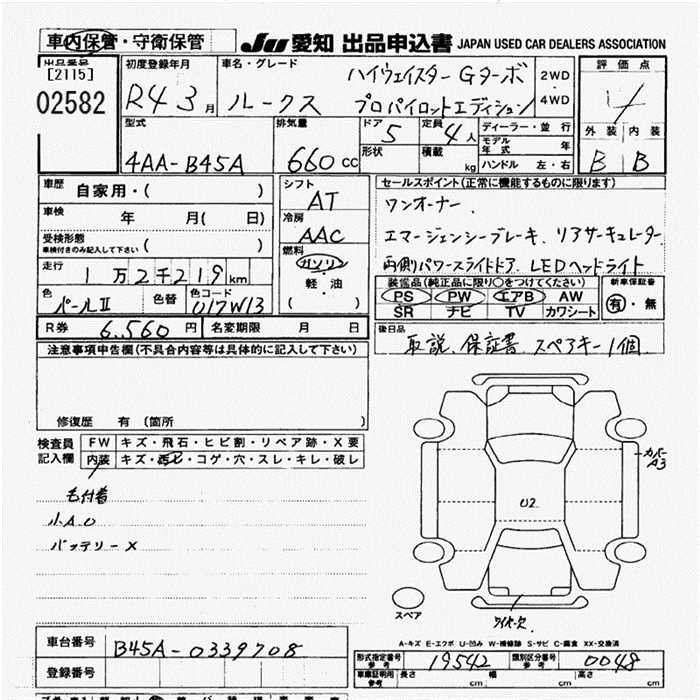 車内保管・守衛保管
JU 愛知 出品申込書 JAPAN USED CAR DEALERS ASSOCIATION
出品番号
[2115]
02582
初度登録年月
R4 3月
車名・グレード
ルークス
ハイウェイスター Gターボ
プロパイロットエディション
2WD
4WD
評価点
4
外装 内装
B B
型式
4AA-B45A
排気量
660cc
ドア 5
形状
定員 4人
積載 kg
ディーラー・並行
モデル年式 年
ハンドル 左・右
車歴 自家用・( )
車検 年 月( 日)
受検形態
車検付きのみ記入して下さい ( )
走行 1万2千219km
色 パールII
色替
色コード 017W13
シフト
AT
冷房
AAC
燃料
ガソリン
軽油
( )
セールスポイント(正常に機能するものに限ります)
ワンオーナー.
エマージェンシーブレーキ. リアサーキュレーター.
両側パワースライドドア. LEDヘッドライト
装備品(純正品に限り○をつけてください)
PS PW エアB AW
SR ナビ TV カワシート
新車保証書
有・無
R券 6,560円
名変期限 月 日
後日品
取説、保証書、スペアキー1個
注意事項申告欄(不具合内容等は具体的に記入して下さい)
修復歴 有 (箇所 )
検査員
記入欄
FW キズ・飛石・ヒビ割・リペア跡・X要
内装 キズ・汚レ・コゲ・穴・スレ・キレ・破レ
毛付着
小AU
バッテリーX
カバー
A3
U2
スペア
ワイパー欠
A-キズ E-エクボ U-凹み W-補修跡 S-サビ C-腐食 XX-交換済
車台番号 B45A-0339708
登録番号
形式指定番号
参考 19542
類別区分番号
参考 0048
車庫証明用
参考 長さ cm 幅 cm 高さ cm